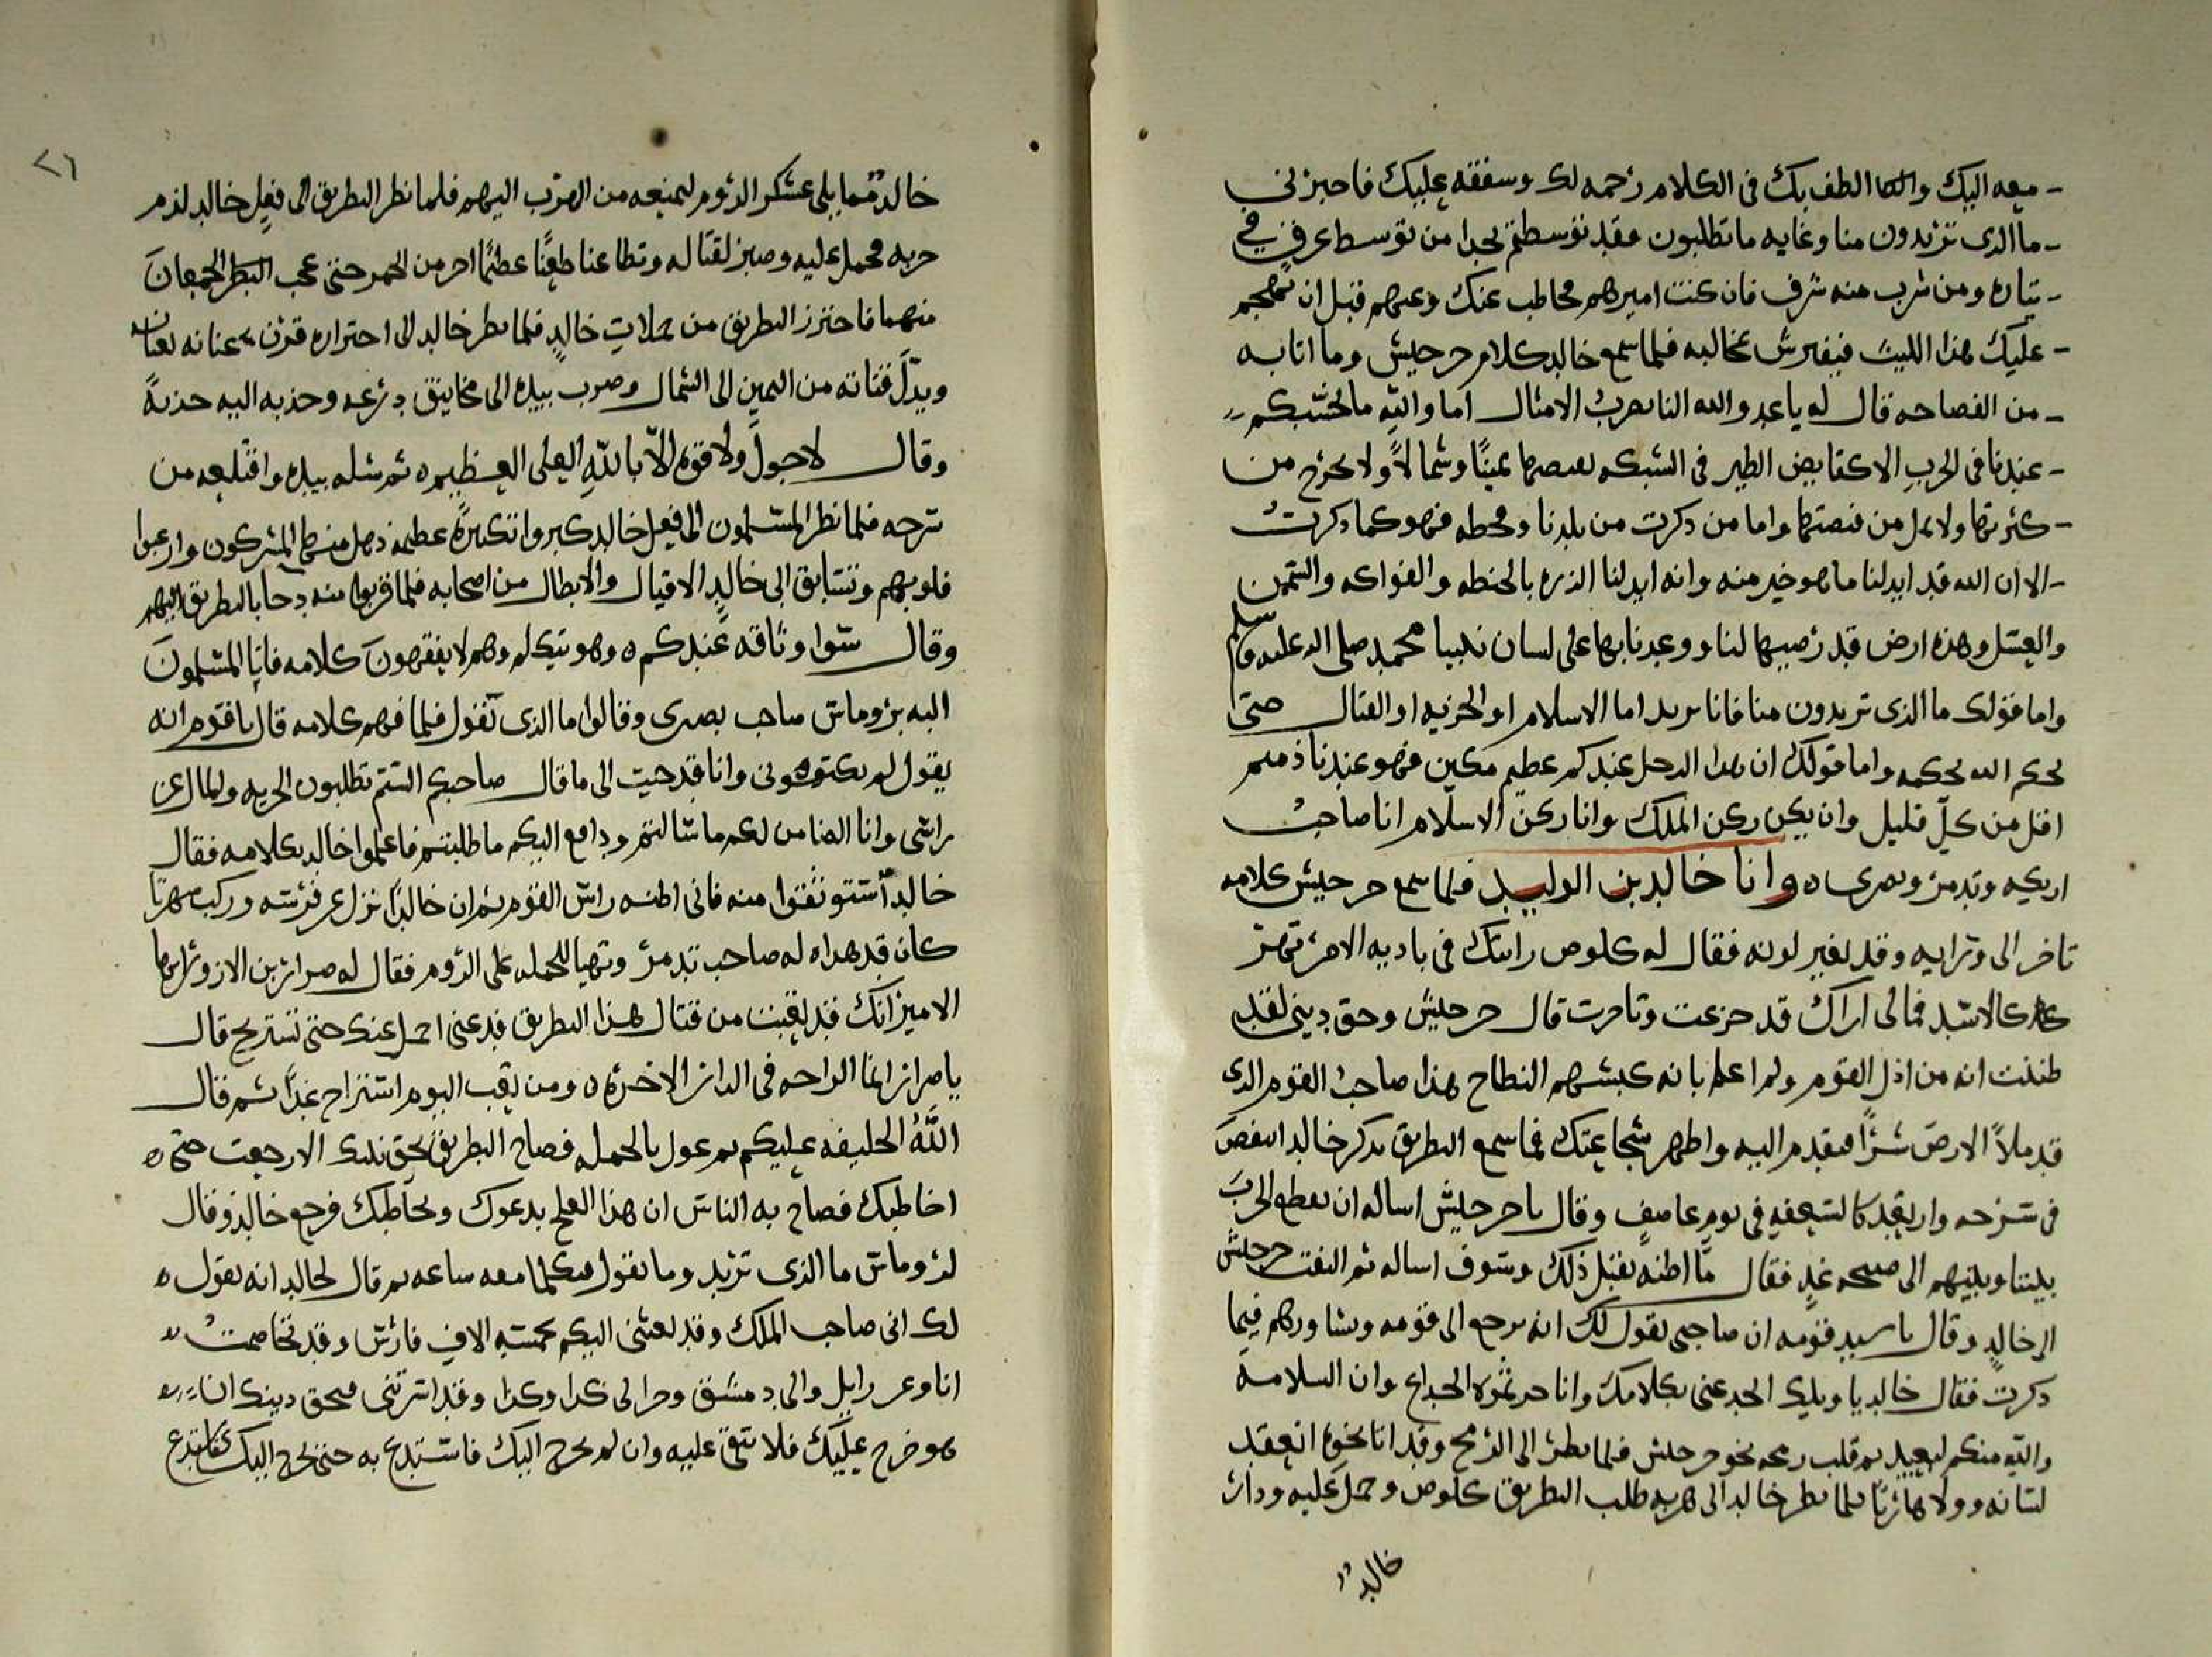 معه اليك والا الطف بك فى الكلام رحمه لك وسفقه عليك فاخبرنى
ما الذى تريدون منا وغايه ما تطلبون فقد توسطتم بحرا من توسط غرق فى
تياره ومن شرب منه شرق فان كنت اميرهم فخاطب عنك وعنهم قبل ان يهجم
عليك هذا الليث فيفترش بمخالبه فلما سمع خالد كلام جرجيش وما اتا به
من الفصاحه قال له يا عدو الله النا تضرب الامثال اما والله ما نحسبكم
عندنا فى الحرب الا كقابض الطير فى الشبكه يقبضها يمينًا وشمالاً ولا يخرج من
كثرتها ولا يمل من قبضتها واما من ذكرت من بلدنا وقحطه فهو كما ذكرت
الا ان الله قد ابدلنا ما هو خير منه وانه ابدلنا الذره بالحنطه والفواكه والسمن
والعسل وهذه ارض قد رضيها لنا ووعدنا بها على لسان نبينا محمد صلى الله عليه وسلم
واما قولك ما الذى تريدون منا فانا نريد اما الاسلام او الجزيه او القتال حتى
يحكم الله بحكمه واما قولك ان هذا الرجل عندكم عظيم مكين فهو عندنا ذميم
اقل من كل قليل وان يكن ركن الملك وانا ركن الاسلام انا صاحب
اريكه وتدمر وبصرى ه وانا خالد بن الوليد فلما سمع جرجيش كلامه
تاخر الى ورايه وقد تغير لونه فقال له كلوص رايتك فى باديه الامر تهز
كالاسد فمالى اراك قد جزعت وتاخرت قال جرجيش وحق دينى لقد
ظننت انه من اذل القوم ولم اعلم بانه كبشهم النطاح هذا صاحب القوم الذى
قد ملأ الارض شرًا فتقدم اليه واظهر شجاعتك فلما سمع البطريق بذكر خالد انتفض
فى سرجه وارتعد كالسعفه فى يوم عاصف وقال يا جرجيش اساله ان يقطع الحرب
بيننا وبينهم الى صبيحه غدٍ فقال ما اظنه يقبل ذلك وسوف اساله ثم التفت جرجيش
الى خالد وقال يا سيد قومه ان صاحبى يقول لك انه يرجع الى قومه ويشاورهم فيما
ذكرت فقال خالد يا ويلك اتخدعنى بكلامك وانا جرثومه الخداع وان السلامه
والله منكم لبعيد ثم قلب رمحه نحو جرجيش فلما نظر الى الرمح وقد انا نحوه انعقد
لسانه وولا هاربًا فلما نظر خالد الى هربه طلب البطريق كلوص وحمل عليه ودار
خالد
٢٦
خالد مما يلى عسكر الروم ليمنعه من الهرب اليهم فلما نظر البطريق الى فعل خالد لزم
حربه فحمل عليه وصبر لقتاله وتطاعنا طعنًا عظيمًا احر من الجمر حتى عجب الجمعان
منهما فاحترز البطريق من حملات خالدٍ فلما نظر خالد الى احترازه قرن عنانه بعنانه
وبدّل قناته من اليمين الى الشمال وضرب بيده الى مخانيق درعه وجذبه اليه جذبةً
وقال لا حول ولا قوه الّا بالله العلى العظيم ه ثم شله بيده واقتلعه من
سرجه فلما نظر المسلمون الى فعل خالد كبروا تكبيرةً عظيمه ذهل منها المشركون وارعبوا
قلوبهم وتسابق الى خالدٍ الاقيال والابطال من اصحابه فلما قربوا منه دحا بالبطريق اليهم
وقال شدوا وثاقه عندكم ه وهو يتكلم وهم لا يفقهون كلامه فاتا المسلمون
اليه بروماس صاحب بصرى وقالوا ما الذى يقول فلما فهم كلامه قال يا قوم انه
يقول لم تكتفونى وانا قد جيت الى ما قال صاحبكم الستم تطلبون الجزيه والمال عن
راسى وانا الضامن لكم ما سالتم ودافع اليكم ما طلبتم فاعلموا خالد بكلامه فقال
خالد استوثقوا منه فانى اظنه راس القوم ثم ان خالدًا نزل عن فرسه وركب مهرًا
كان قد هداه له صاحب تدمر وتهيا للحمله على الروم فقال له ضرار بن الازور ايها
الامير انك قد تعبت من قتال هذا البطريق فدعنى احمل عنك حتى تستريح قال
يا ضرار انما الراحه فى الدار الاخره ه ومن تعب اليوم استراح غدًا ثم قال
اللَّهُ الخليفه عليكم ثم عول بالحمله فصاح البطريق بحق نبيك الا رجعت حتى ه
اخاطبك فصاح به الناس ان هذا العلج يدعوك ويخاطبك فرجع خالد وقال
لروماس ما الذى تريد وما تقول فتكلما معه ساعه ثم قال لخالد انه يقول ه
لك انى صاحب الملك وقد بعثنى اليكم بخمسه الاف فارس وقد تخاصمت
انا وعزرايل والى دمشق وجرا لى كذا وكذا وقد اسرتنى فبحق دينك ان
هو خرج عليك فلا تبق عليه وان لم يخرج اليك فاستدع به حتى يخرج اليك